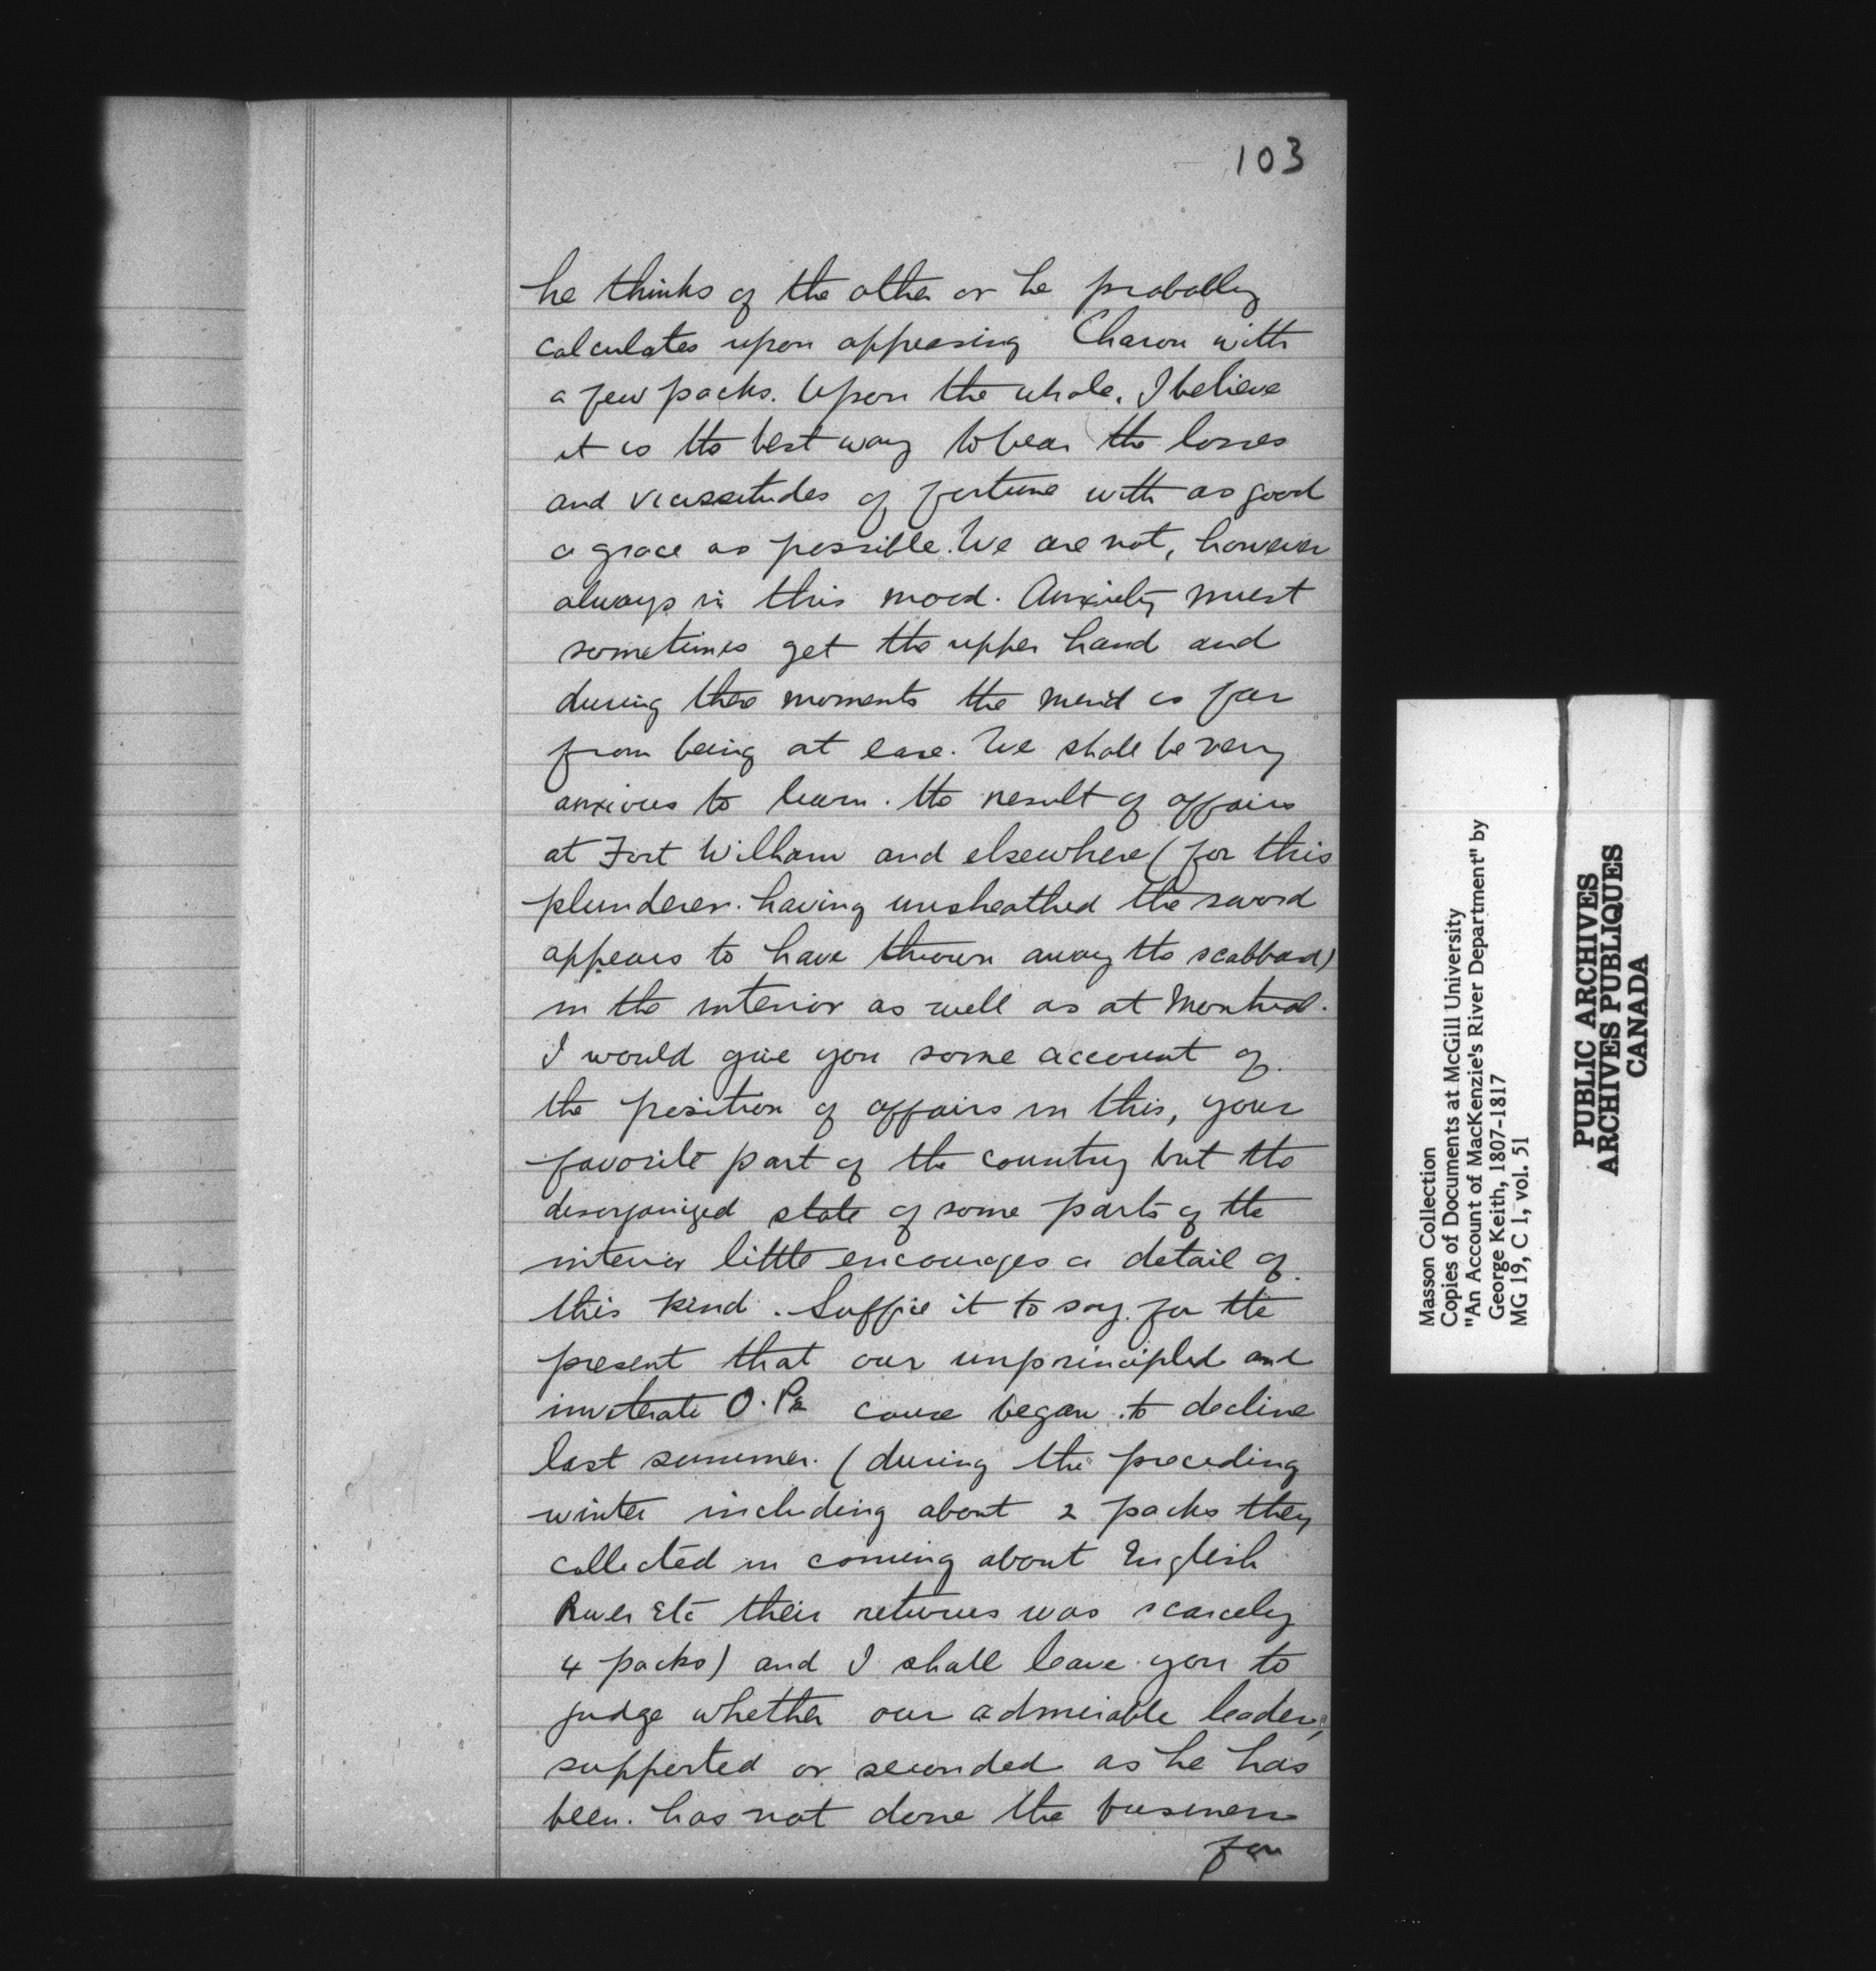 103
he thinks of the other or he probably
calculates upon appeasing Charon with
a few packs. Upon the whole, I believe
it is the best way to bear the losses
and vicissitudes of fortune with as good
a grace as possible. We are not, however
always in this mood. Anxiety must
sometimes get the upper hand and
during these moments the mind is far
from being at ease. We shall be very
anxious to learn the result of affairs
at Fort William and elsewhere (for this
plunderer having unsheathed the sword
appears to have thrown away the scabbard)
in the interior as well as at Montreal.
I would give you some account of
the position of affairs in this, your
favorite part of the country but the
disorganized state of some parts of the
interior little encourages a detail of
this kind. Suffice it to say for the
present that our unprincipled and
inveterate O.Ps cause began to decline
last summer. (during the preceding
winter including about 2 packs they
collected in coming about English
River Etc their returns was scarcely
4 packs) and I shall leave you to
judge whether our admirable leader,
supported or seconded as he has
been. has not done the business
for
Masson Collection
Copies of Documents at McGill University
"An Account of MacKenzie's River Department" by
George Keith, 1807-1817
MG 19, C 1, vol. 51
PUBLIC ARCHIVES
ARCHIVES PUBLIQUES
CANADA